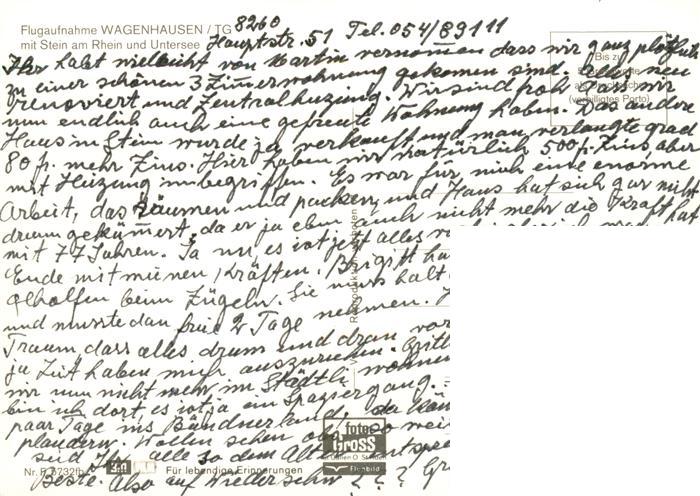 Flugaufnahme WAGENHAUSEN / TG
mit Stein am Rhein und Untersee
8260
Hauptstr. 51 Tel. 054/89111
Ihr habt vielleicht von Martin vernommen dass wir ganz plötzlich
zu einer schönen 3 Zimmerwohnung gekomen sind. Alles neu
renoviert und Zentralheizung. Wir sind froh dass wir
nun endlich auch eine gefreute Wohnung haben. Das andere
Haus in Stein wurde ja verkauft und man verlangte grad
80 fr. mehr Zins. Hier haben wir natürlich 500 fr. Zins, aber
mit Heizung inbegriffen. Es war für mich eine enorme
Arbeit, das räumen und packen, und Hans hat sich gar nicht
drum gekümert, da er ja eben auch nicht mehr die Kraft hat
mit 77 Jahren. Ja nu, es ist jetzt alles
Ende mit meinen Kräften. Brigitt
gholfen beim Zügeln. Sie muss halt
und musste dan frei 2 Tage nehmen.
Traum, dass alles drum und dran
ja Zeit haben mich auszuruhen.
wir nun nicht mehr im Städtli wohnen
bin ich dort, es ist ja ein Spaziergang.
paar Tage ins Bündnerland, der
plaudern. Wollen sehen ob so weit
seid Ihr alle so dem Alt
Beste. Also auf Wiedersehn ? ? ?
(verbilligtes Porto)
foto
GROSS
St. Gallen
Flugbild
Für lebendige Erinnerungen